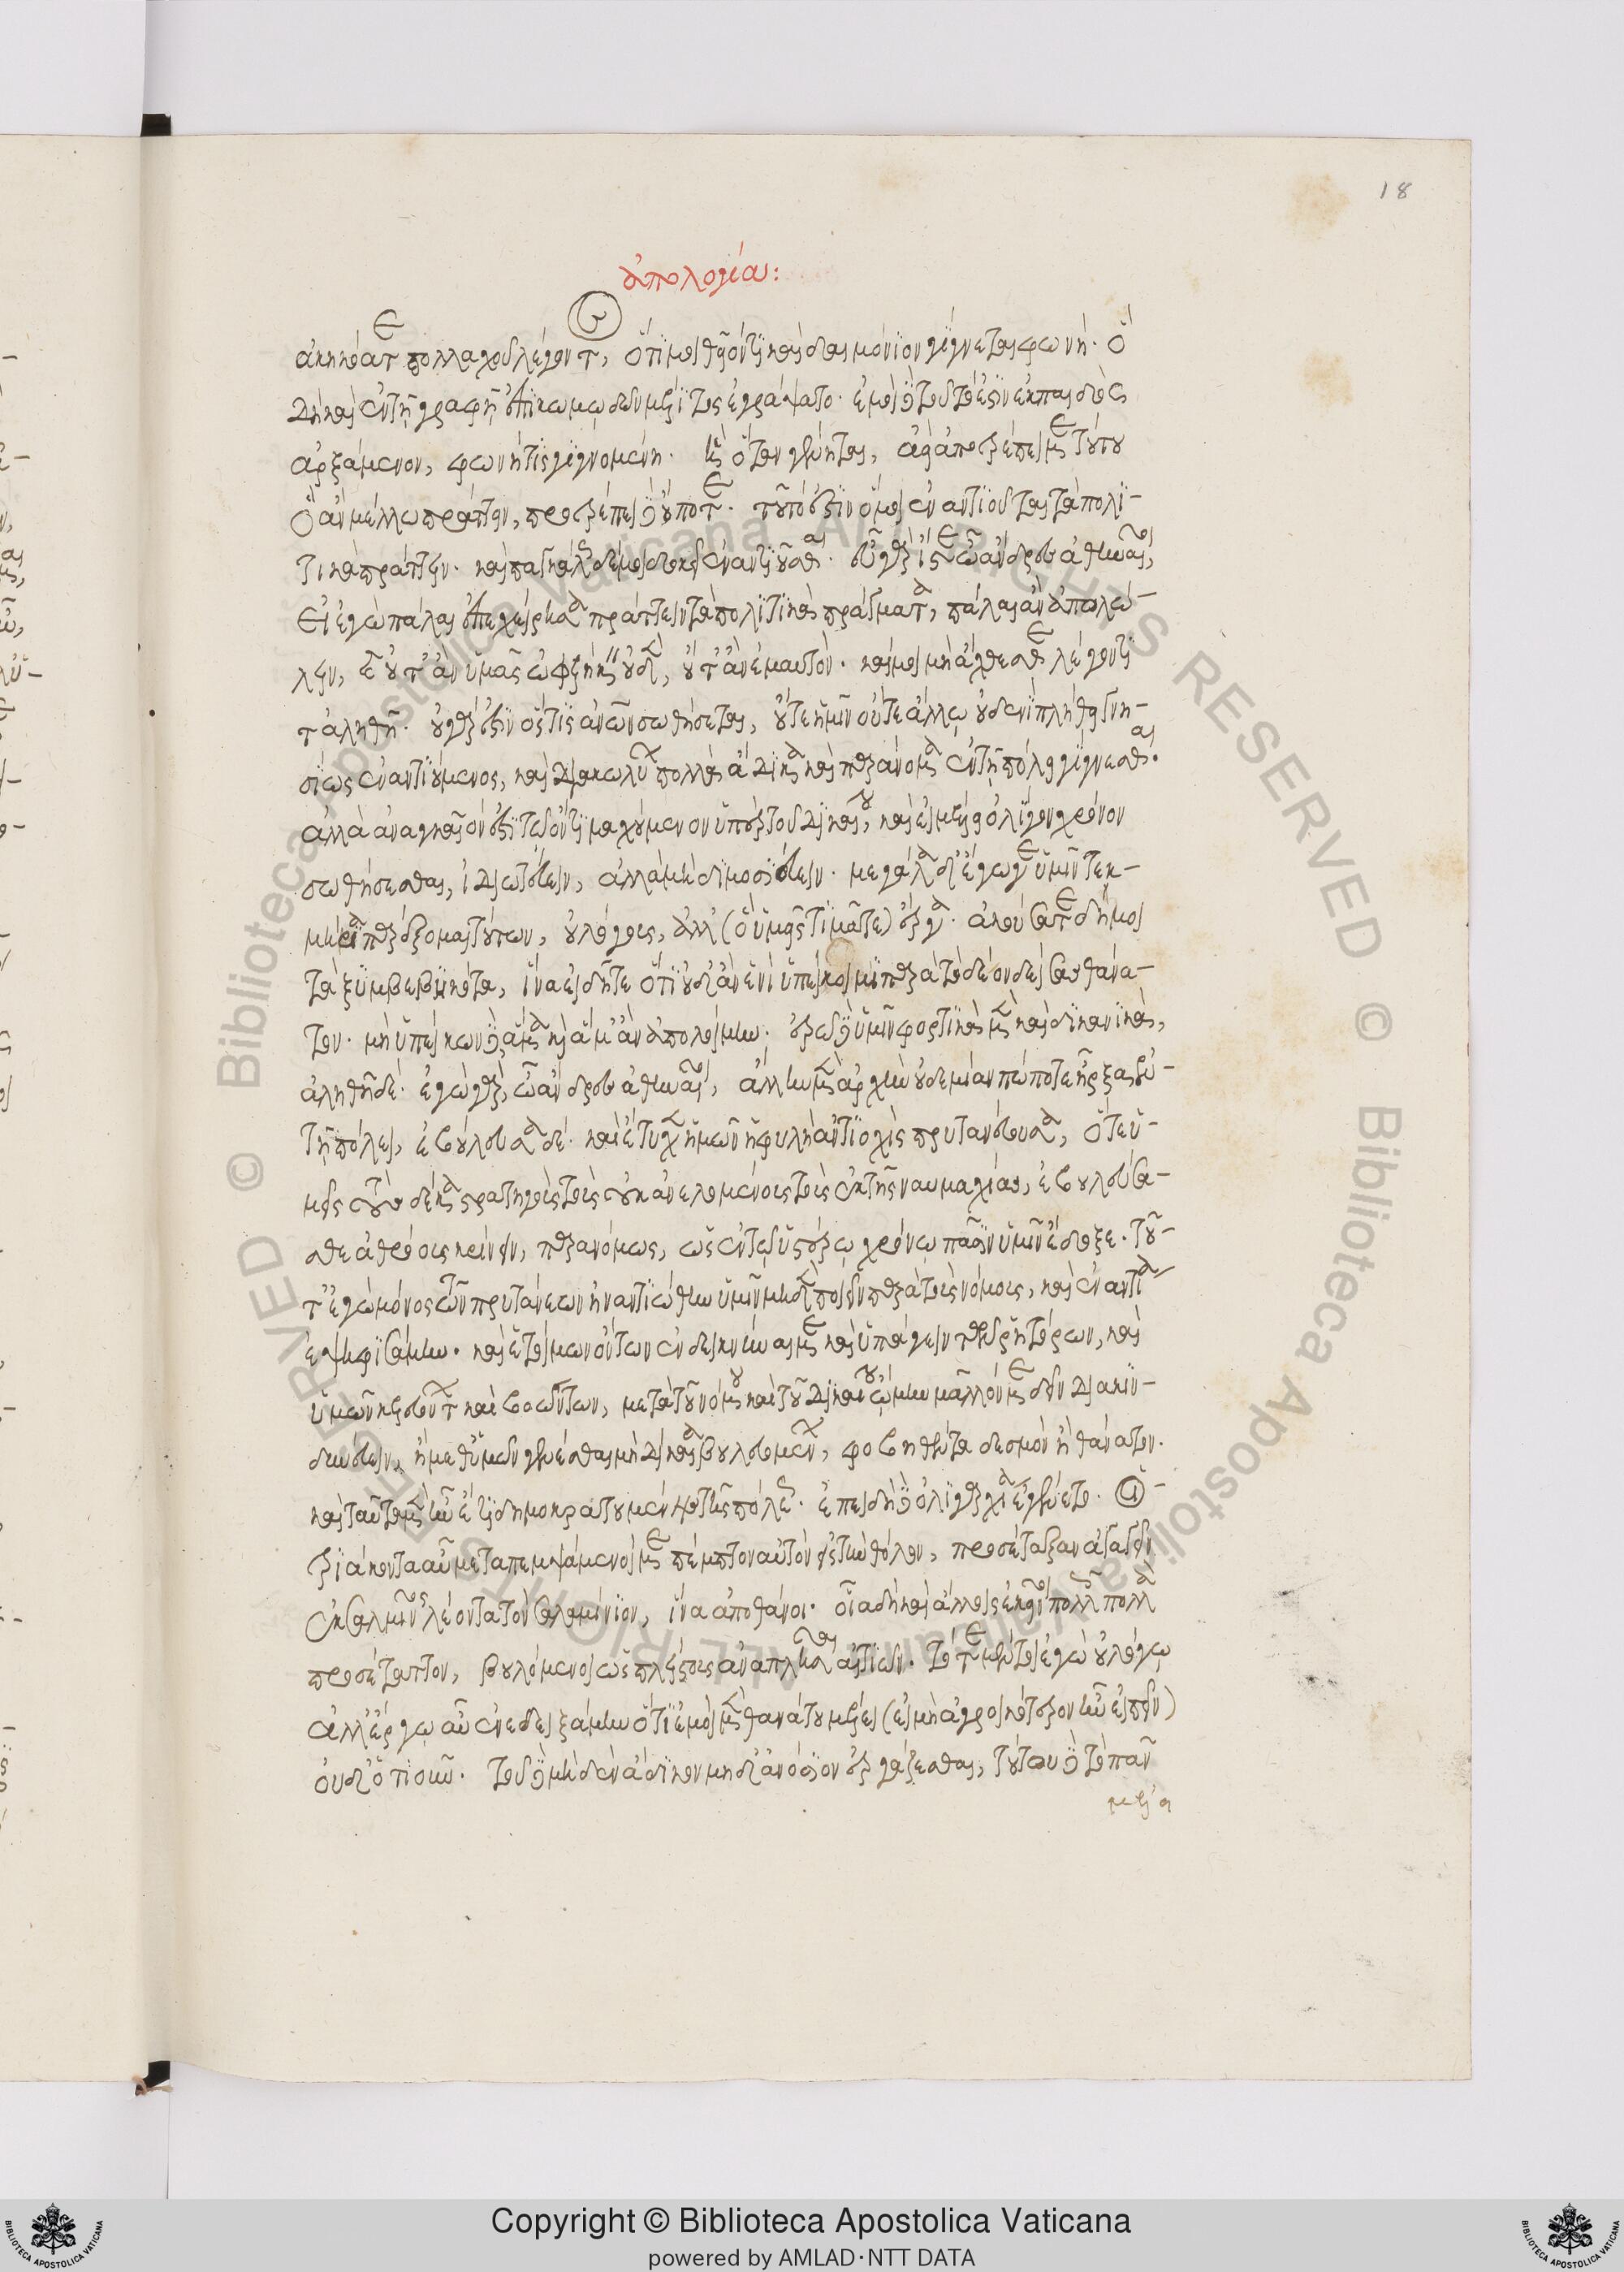 18
ἀπολογία:
ἀκηκόατε πολλαχοῦ λέγοντος, ὅτι μοι θεῖόν τι καὶ δαιμόνιον γίγνεται φωνή. ὃ
δὴ καὶ ἐν τῇ γραφῇ ἐπικωμῳδῶν μέλιτος ἐγράψατο. ἐμοὶ δὲ τοῦτό ἐστιν ἐκ παιδὸς
ἀρξάμενον, φωνή τις γιγνομένη. ἣ ὅταν γένηται, ἀεὶ ἀποτρέπει με τούτου
ὃ ἂν μέλλω πράττειν, προτρέπει δὲ οὔποτε. τοῦτό ἐστιν ὅ μοι ἐναντιοῦται τὰ πολι-
τικὰ πράττειν. καὶ παγκάλως γέ μοι δοκεῖ ἐναντιοῦσθαι. εὖ γὰρ ἴστε ὦ ἄνδρες ἀθηναῖοι,
εἰ ἐγὼ πάλαι ἐπεχείρησα πράττειν τὰ πολιτικὰ πράγματα, πάλαι ἂν ἀπολώ-
λειν, καὶ οὔτ' ἂν ὑμᾶς ὠφελήκη οὐδὲν, οὔτ' ἂν ἐμαυτόν. καί μοι μὴ ἄχθεσθε λέγοντι
τἀληθῆ. οὐ γάρ ἐστιν ὅστις ἀνθρώπων σωθήσεται, οὔτε ὑμῖν οὔτε ἄλλῳ οὐδενὶ πλήθει γνη-
σίως ἐναντιούμενος, καὶ διακωλύων πολλὰ ἄδικα καὶ παράνομα ἐν τῇ πόλει γίγνεσθαι.
ἀλλὰ ἀναγκαῖόν ἐστι τὸν τῷ ὄντι μαχούμενον ὑπὲρ τοῦ δικαίου, καὶ εἰ μέλλει ὀλίγον χρόνον
σωθήσεσθαι, ἰδιωτεύειν, ἀλλὰ μὴ δημοσιεύειν. μεγάλα δ' ἔγωγε ὑμῖν τεκ-
μήρια παρέξομαι τούτων, οὐ λόγους, ἀλλ' (ὃ ὑμεῖς τιμᾶτε) ἔργα. ἀκούσατε δή μοι
τὰ ξυμβεβηκότα, ἵνα εἰδῆτε ὅτι οὐδ' ἂν ἑνὶ ὑπείκοιμι παρὰ τὸ δέον δείσας θάνα-
τον. μὴ ὑπείκων δὲ ἅμα καὶ ἅμ' ἂν ἀπολοίμην. ἐρῶ δὲ ὑμῖν φορτικὰ μὲν καὶ δικανικὰ,
ἀληθῆ δέ. ἐγὼ γὰρ, ὦ ἄνδρες ἀθηναῖοι, ἄλλην μὲν ἀρχὴν οὐδεμίαν πώποτε ἦρξα ἐν
τῇ πόλει, ἐβούλευσα δέ. καὶ ἔτυχεν ἡμῶν ἡ φυλὴ ἀντιοχὶς πρυτανεύουσα, ὅτε ὑ-
μεῖς τοὺς δέκα στρατηγοὺς τοὺς οὐκ ἀνελομένους τοὺς ἐκ τῆς ναυμαχίας, ἐβουλεύσα-
σθε ἀθρόους κρίνειν, παρανόμως, ὡς ἐν τῷ ὑστέρῳ χρόνῳ πᾶσιν ὑμῖν ἔδοξε. τό-
τ' ἐγὼ μόνος τῶν πρυτάνεων ἠναντιώθην ὑμῖν μηδὲν ποιεῖν παρὰ τοὺς νόμους, καὶ ἐναντία
ἐψηφισάμην. καὶ ἑτοίμων ὄντων ἐνδεικνύναι με καὶ ὑπάγειν τῶν ῥητόρων, καὶ
ὑμῶν κελευόντων καὶ βοώντων, μετὰ τοῦ νόμου καὶ τοῦ δικαίου ᾤμην μᾶλλόν με δεῖν διακιν-
δυνεύειν, ἢ μεθ' ὑμῶν γενέσθαι μὴ δίκαια βουλευομένων, φοβηθέντα δεσμὸν ἢ θάνατον.
καὶ ταῦτα μὲν ἦν ἔτι δημοκρατουμένης τῆς πόλεως. ἐπειδὴ δὲ ὀλιγαρχία ἐγένετο. οἱ
τριάκοντα αὖ μεταπεμψάμενοί με πέμπτον αὐτὸν εἰς τὴν θόλον, προσέταξαν ἀγαγεῖν
ἐκ σαλαμῖνος λέοντα τὸν σαλαμίνιον, ἵνα ἀποθάνοι. οἷα δὴ καὶ ἄλλοις ἐκεῖνοι πολλοῖς πολλὰ
προσέταττον, βουλόμενοι ὡς πλείστους ἀναπλῆσαι αἰτιῶν. τότε μέντοι ἐγὼ οὐ λόγῳ
ἀλλ' ἔργῳ αὖ ἐνεδειξάμην ὅτι ἐμοὶ μὲν θανάτου μέλει (εἰ μὴ ἀγροικότερον ἦν εἰπεῖν)
οὐδ' ὁτιοῦν. τοῦ δὲ μηδὲν ἄδικον μηδ' ἀνόσιον ἐργάζεσθαι, τούτου δὲ τὸ πᾶν
μέλει
Copyright © Biblioteca Apostolica Vaticana
powered by AMLAD·NTT DATA